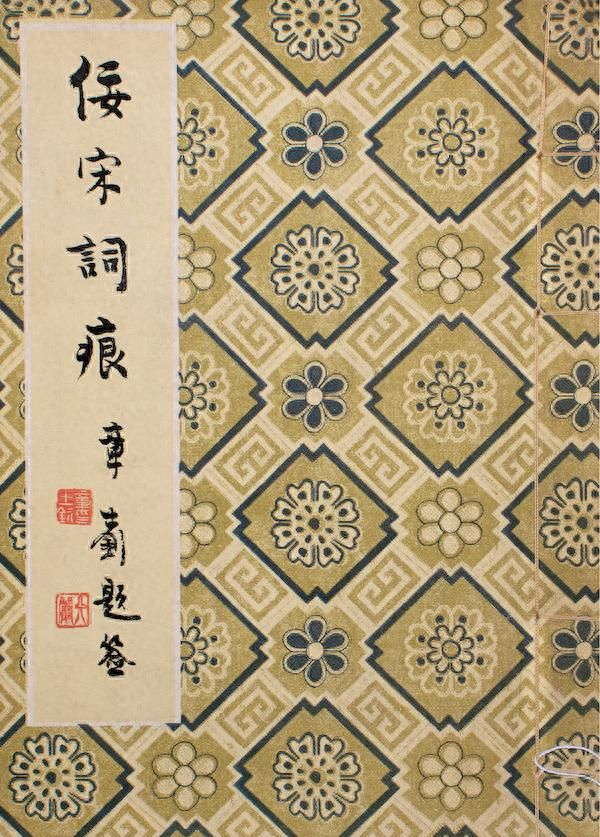 佞宋詞痕
章題簽